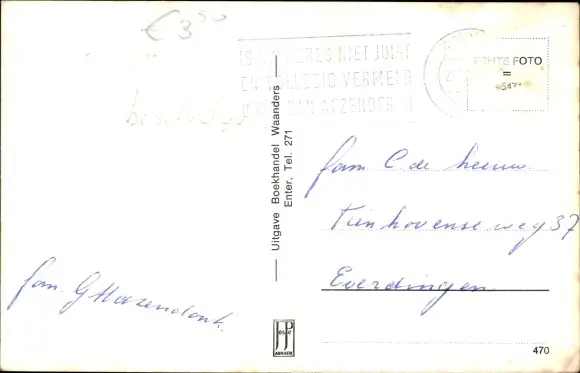 € 3 50
IS ADRES NIET JUIST
EN VOLLEDIG VERMELD
AFZENDER
ECHTE FOTO
=
beschadigd
Uitgave Boekhandel Waanders
Enter, Tel. 271
fam C. de Leeuw
Tienhovenseweg 37
Everdingen
fam. G Hazendonk
JosPé
ARNHEM
470